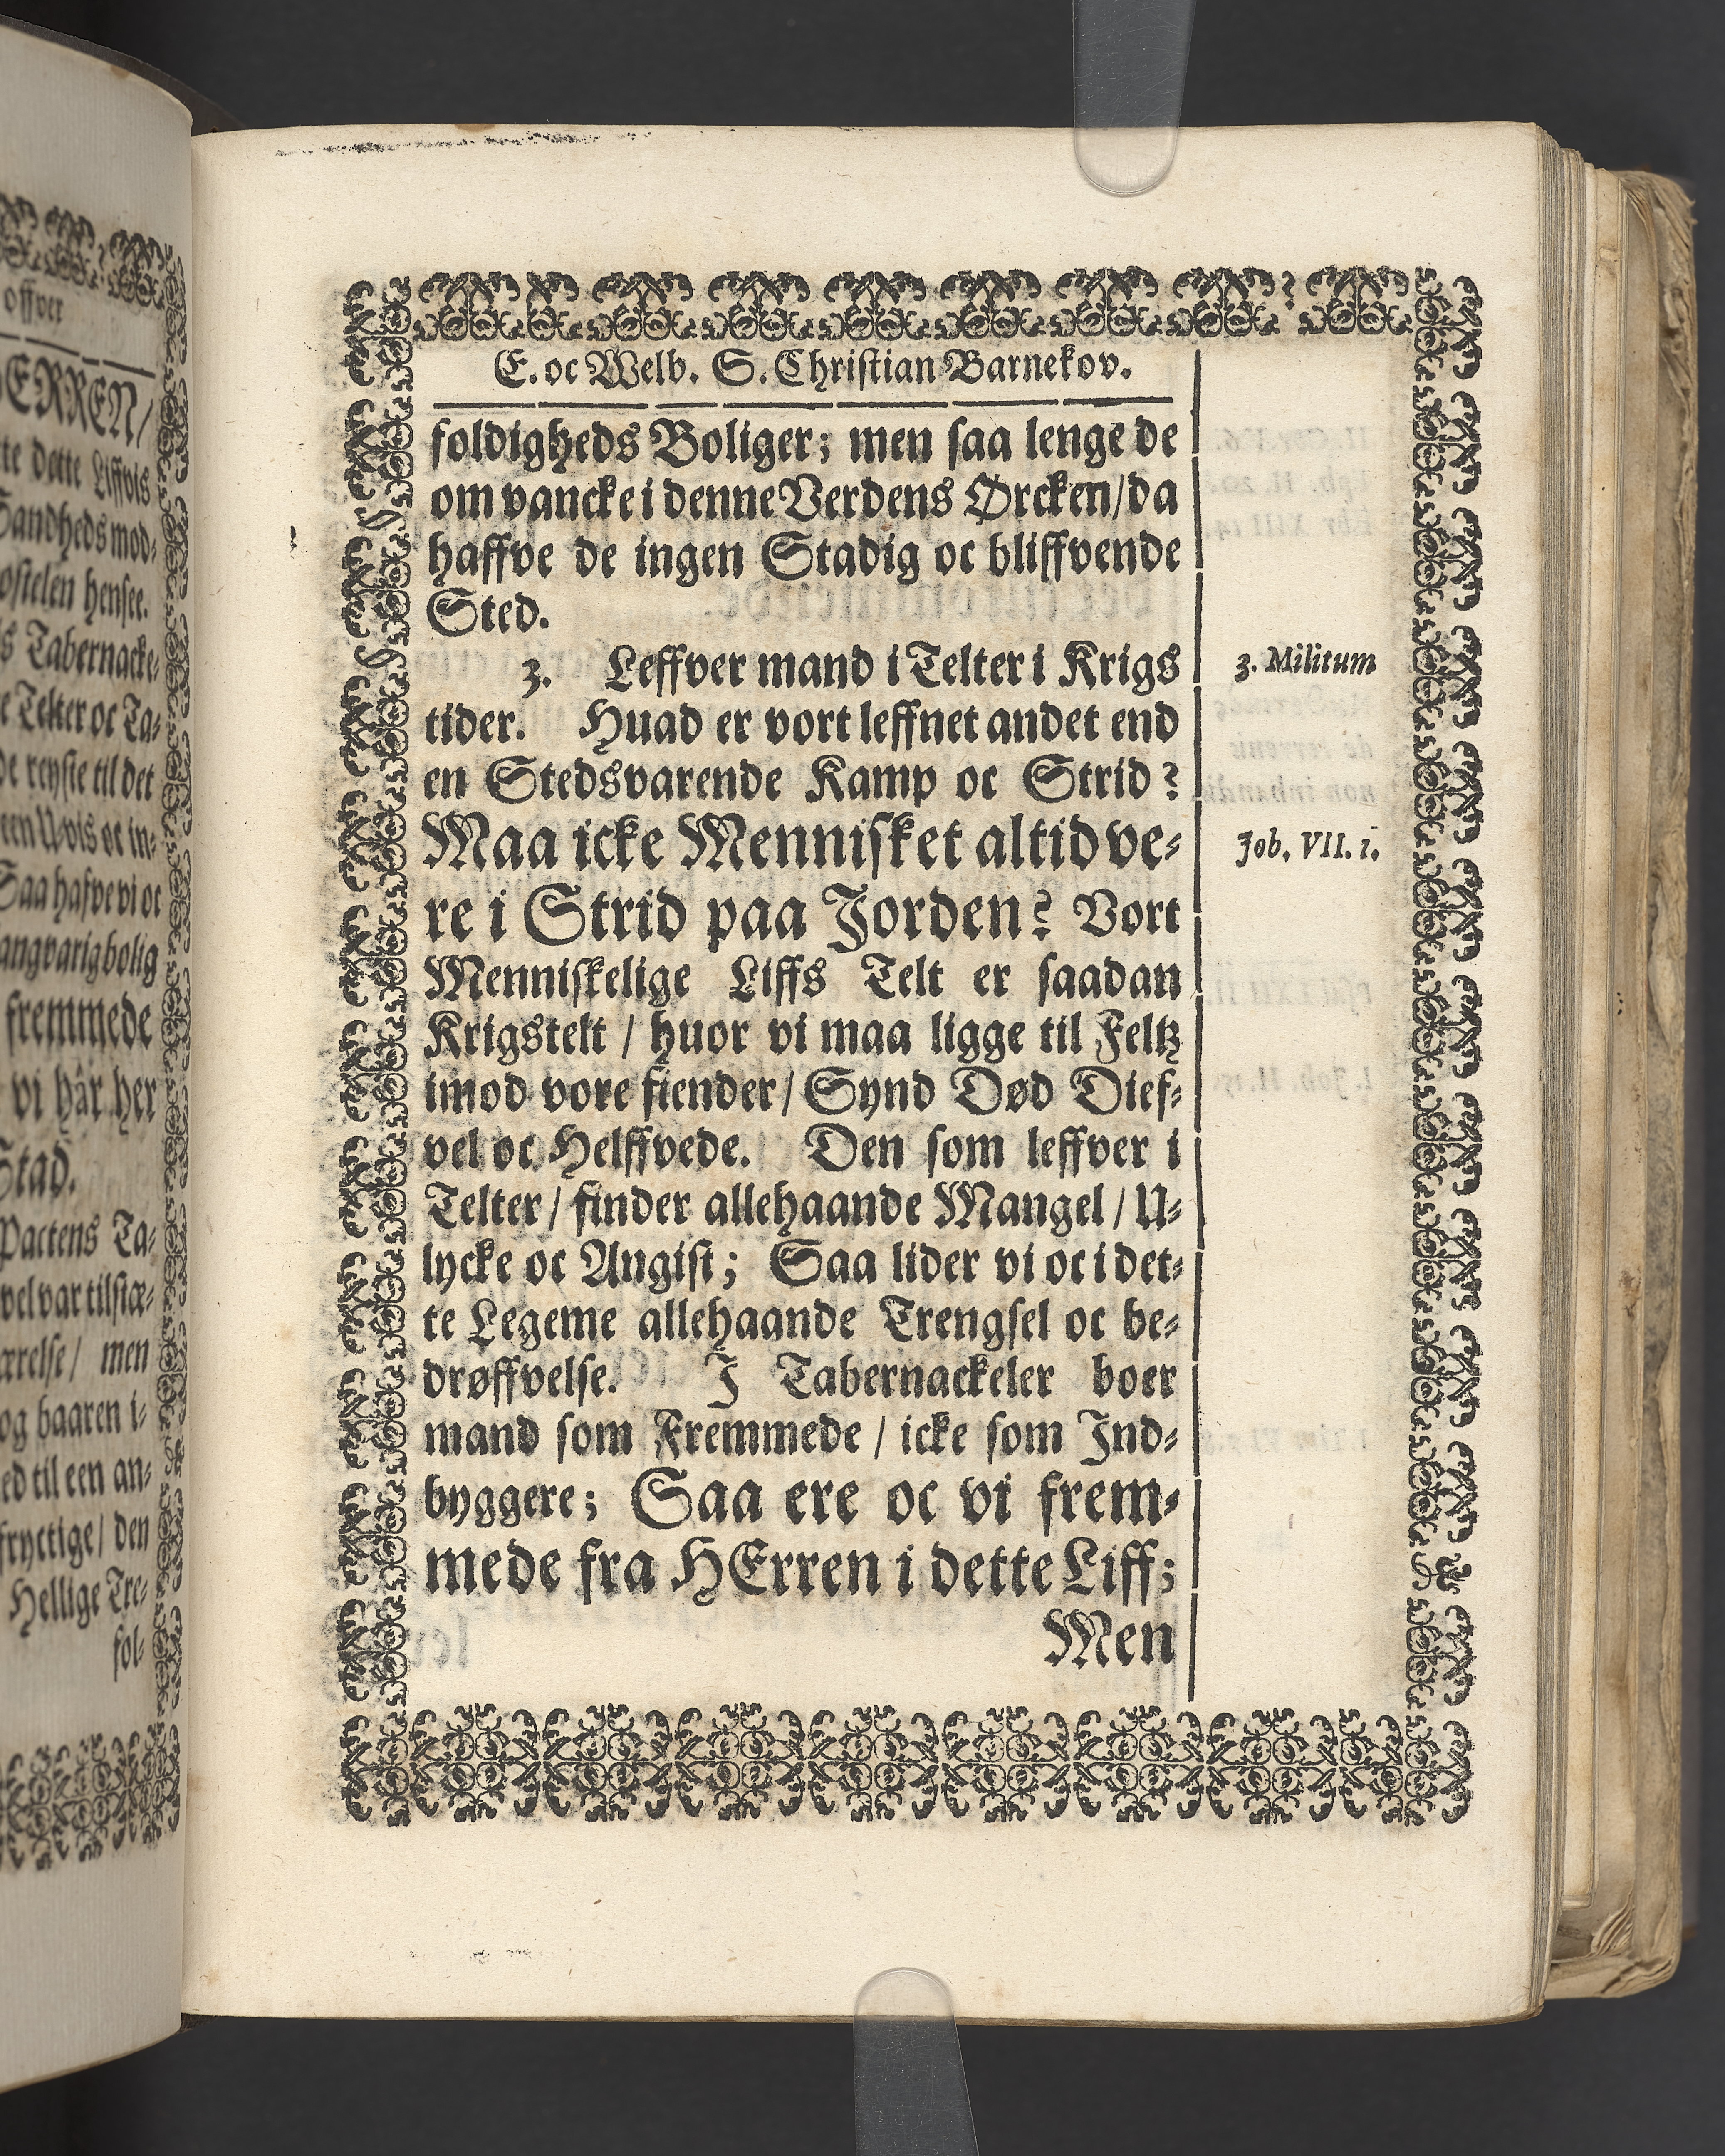 offver
ERREN/
te dette Liffvis
Sandheds mod⸗
ostelen hensee.
s Tabernacke⸗
e Telter oc Ta⸗
de reyste til det
een U-vis oc in⸗
Saa hafve vi oc
angvarig bolig
fremmede
vi hâr her
Stad.
Pactens Ta⸗
vel var tilstæ⸗
ærelse/ men
og baaren i⸗
ed til een an⸗
fryctige/ den
Hellige Tre⸗
fol⸗
E. oc Welb. S. Christian Barnekov.
foldigheds Boliger; men saa lenge de
om vancke i denne Verdens Ørcken/ da
haffve de ingen Stadig oc bliffvende
Sted.
3. Leffver mand i Telter i Krigs
3. Militum
tider. Huad er vort leffnet andet end
en Stedsvarende Kamp oc Strid?
Maa icke Mennisket altid ve⸗
Job. VII. 1.
re i Strid paa Jorden? Vort
Menniskelige Liffs Telt er saadan
Krigstelt / huor vi maa ligge til Feltz
imod vore fiender/ Synd Død Dief⸗
vel oc Helffvede. Den som leffver i
Telter/ finder allehaande Mangel / U⸗
lycke oc Angist; Saa lider vi oc i det⸗
te Legeme allehaande Trengsel oc be⸗
drøffvelse. J Tabernackeler boer
mand som Fremmede / icke som Ind⸗
byggere; Saa ere oc vi frem⸗
mede fra HErren i dette Liff;
Men